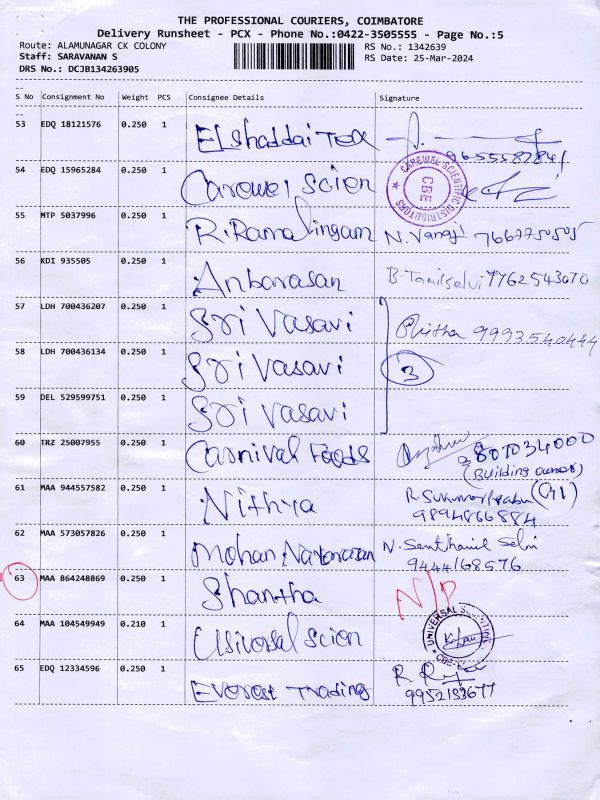 THE PROFESSIONAL COURIERS, COIMBATORE
Delivery Runsheet - PCX - Phone No.:0422-3505555 - Page No.:5
Route: ALAMUNAGAR CK COLONY
Staff: SARAVANAN S
DRS No.: DCJB134263905
RS No.: 1342639
RS Date: 25-Mar-2024
S No Consignment No Weight PCS Consignee Details Signature
53 EDQ 18121576 0.250 1 ELshaddai Tex
54 EDQ 15965284 0.250 1 Carewel Scien
CAREWEL SCIENTIFIC DISTRIBUTORS
CBE
55 MTP 5037996 0.250 1 R. Ramalingam N.
56 KDI 935505 0.250 1 Anbarasan B. Tamilselvi 7762543670
57 LDH 700436207 0.250 1 Sri Vasavi 9993540444
58 LDH 700436134 0.250 1 Sri Vasavi 3
59 DEL 529599751 0.250 1 Sri Vasavi
60 TRZ 25007955 0.250 1 Carnival Foods 9807034000
(Building owner)
61 MAA 944557582 0.250 1 Nithya (G1)
9894866884
62 MAA 573057826 0.250 1 Mohan Natarajan N. Senthamil Selvi
9444168576
63 MAA 864248869 0.250 1 Shantha N/P
64 MAA 104549949 0.210 1 Usiversal Scien
UNIVERSAL
65 EDQ 12334596 0.250 1 Everest Trading
9952133677